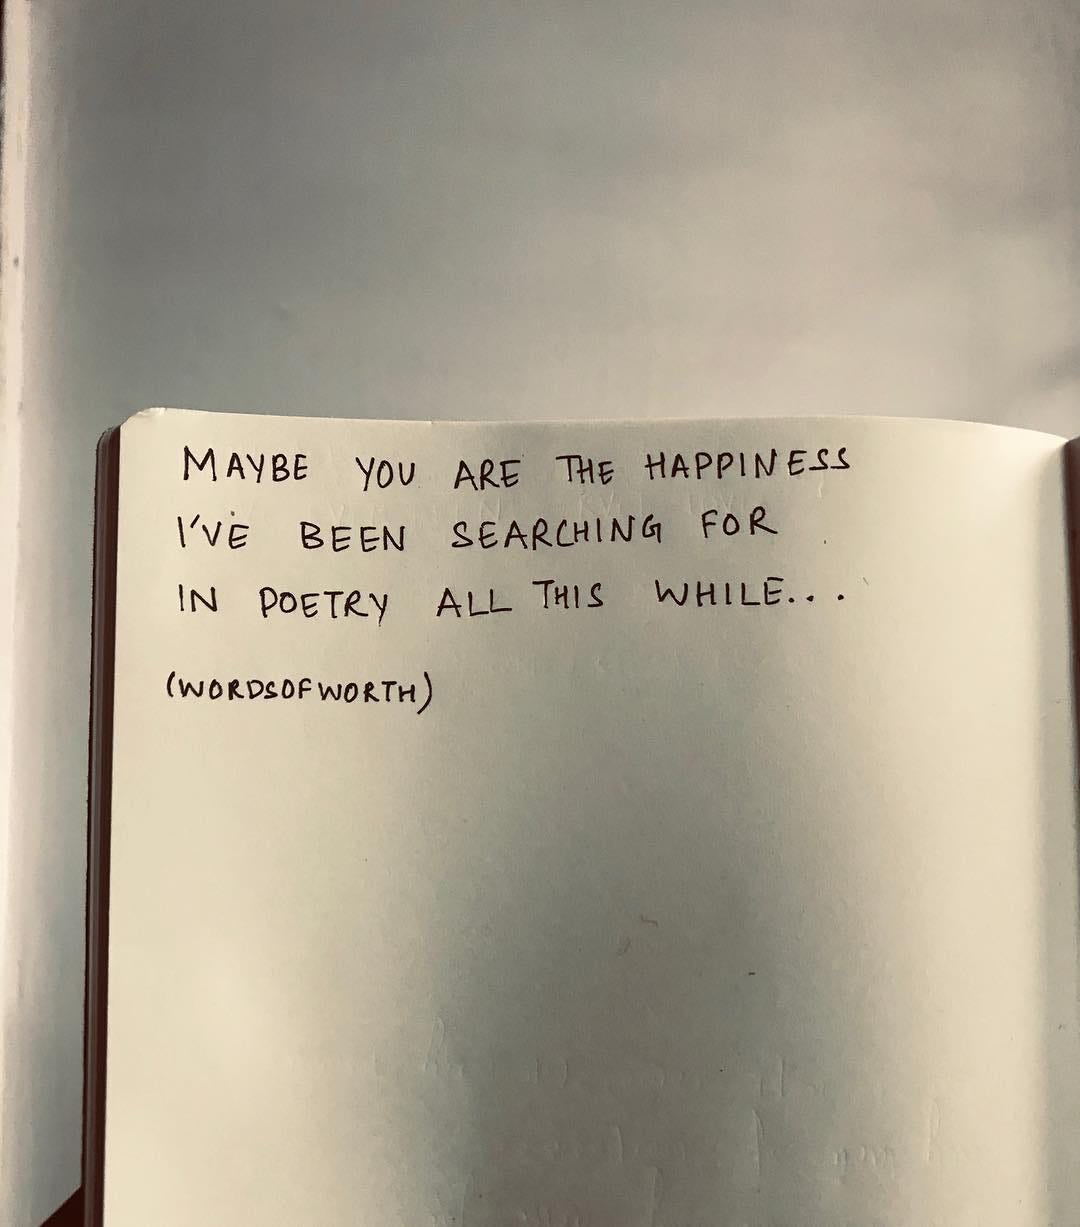 MAYBE YOU ARE THE HAPPINESS
I'VE BEEN SEARCHING FOR
IN POETRY ALL THIS WHILE...
(WORDSOFWORTH)